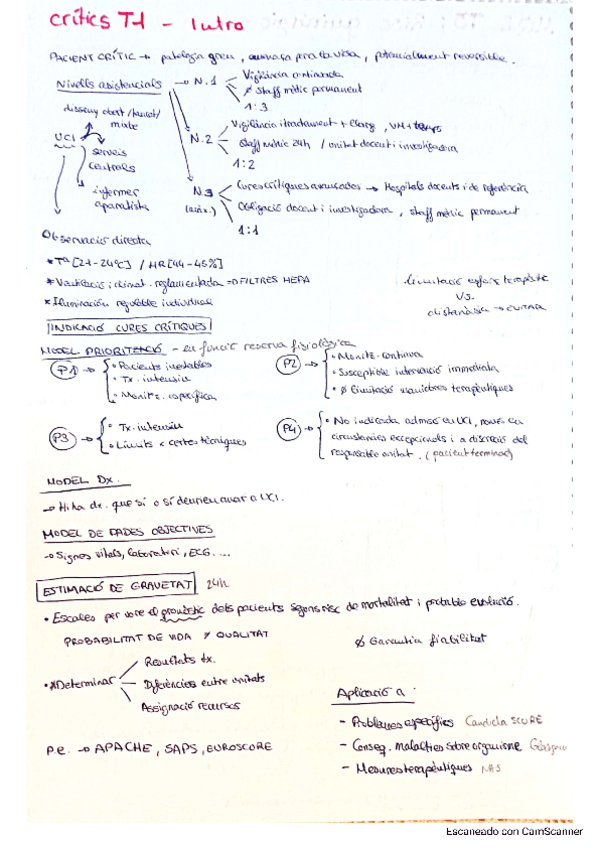 crítics T1 - Intro
PACIENT CRÍTIC → patologia greu, amenaça per a la vida, potencialment reversible.
Nivells asistencials → N.1 Vigilància continuada
Ø Staff mèdic permanent
1:3
disseny obert/tancat/mixte
UCI
serveis centrals
infermer aparatista
N.2 Vigilància i tractament +
Staff mèdic 24h / unitat docent i investigadora
1:2
N3 (màx.) Cures crítiques avançades → Hospitals docents i de referència
Obligació docent i investigadora, staff mèdic permanent
1:1
Observació directa
* Tª [21-24ºC] / HR [44-45%]
* Ventilació i climat. reglamentada => FILTRES HEPA
* Iluminación regulable individual
limitació esforç terapèutic
V.S.
distanàsia → EVITAR
INDICACIÓ CURES CRÍTIQUES
MODEL PRIORITZACIÓ - en funció reserva fisiològica
P1 → • Pacients inestables
• Tx. intensiu
• Monitz. específica
P2 → • Monitz. continua
• Susceptible intervenció immediata
• Ø limitació maniobres terapèutiques
P3 → • Tx. intensiu
• Límits x certes tècniques
P4 → • No indicada admisó en UCI, només en
circumstàncies excepcionals i a discreció del
responsable unitat. (pacient terminal)
MODEL Dx.
→ Hi ha dx. que sí o sí deuen anar a UCI.
MODEL DE DADES OBJECTIVES
→ Signes vitals, laboratori, ECG....
ESTIMACIÓ DE GRAVETAT 24h
• Escales per vore el pronòstic dels pacients segons risc de mortalitat i probable evolució.
PROBABILITAT DE VIDA Y QUALITAT
Ø Garantia fiabilitat
• *Determinar Resultats tx.
Diferències entre unitats
Assignació recursos
Aplicació a
- Problemes específics Candida SCORE
- Conseq. malalties sobre organisme Glasgow
- Mesures terapèutiques NAS
P.e. → APACHE, SAPS, EUROSCORE
Escaneado con CamScanner